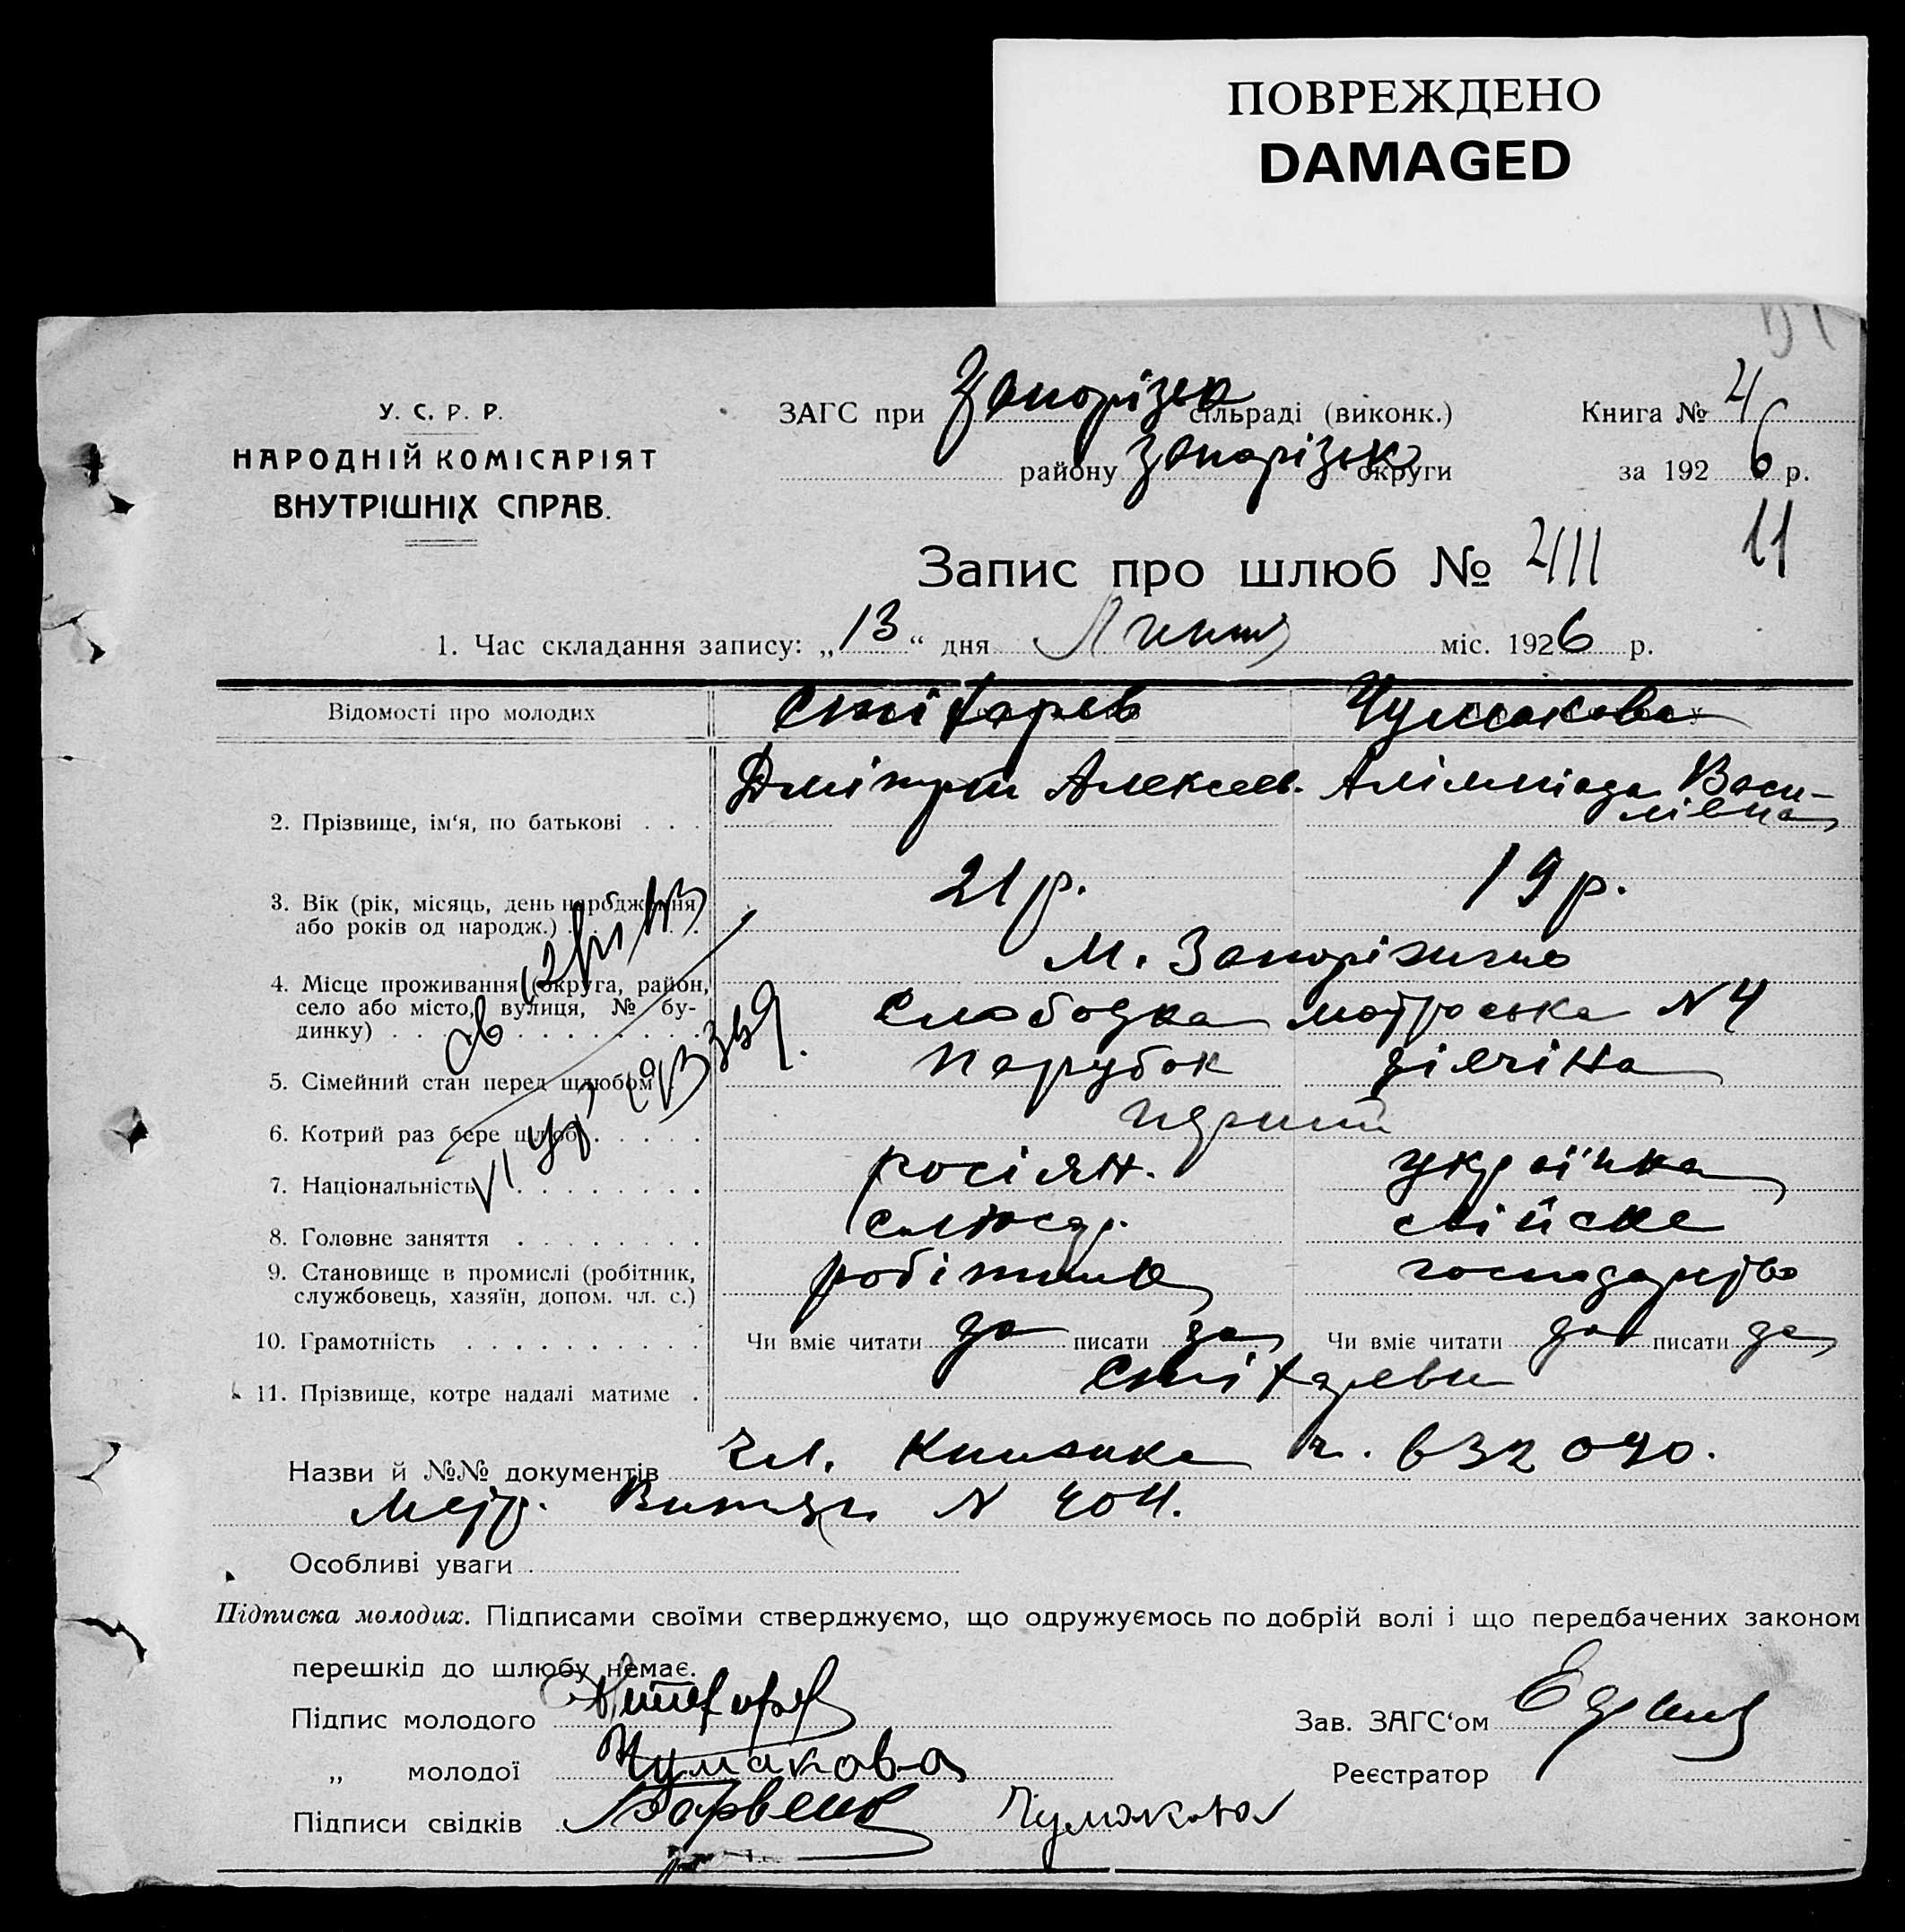 ПОВРЕЖДЕНО
DAMAGED
У. С. Р. Р.
НАРОДНІЙ КОМІСАРІЯТ
ВНУТРІШНІХ СПРАВ.
ЗАГС при Запорізьк сільраді (виконк.)
району Запорізьк округи
Книга № 4
за 1926 р.
11
Запис про шлюб № 411
1. Час складання запису: „13“ дня Липня міс. 1926 р.
Відомості про молодих
Снітарев Чумакова
2. Прізвище, ім‘я, по батькові . . . Дмітрій Алексеев. Алімпіада Васи-
лівна
3. Вік (рік, місяць, день народження
або років од народж.) 21 р. 19 р.
4. Місце проживання (округа, район,
село або місто, вулиця, № бу-
динку) М. Запоріжжє
Слободка матроська N 4
5. Сімейний стан перед шлюбом парубок дівчіна
6. Котрий раз бере шлюб перший
7. Національність росіян. українка
8. Головне заняття слюсар. сільске
9. Становище в промислі (робітник,
службовець, хазяїн, допом. чл. с.) робітник господарство
10. Грамотність Чи вміє читати да писати да Чи вміє читати да писати да
11. Прізвище, котре надалі матиме . Снітареви
Назви й №№ документів чл. Книжка ч.
Метр. Витяг N 404.
Особливі уваги
Підписка молодих. Підписами своїми стверджуємо, що одружуємось по добрій волі і що передбачених законом
перешкід до шлюбу немає.
Підпис молодого
„ молодої Чумакова
Підписи свідків Чумакова
Зав. ЗАГС‘ом
Реєстратор